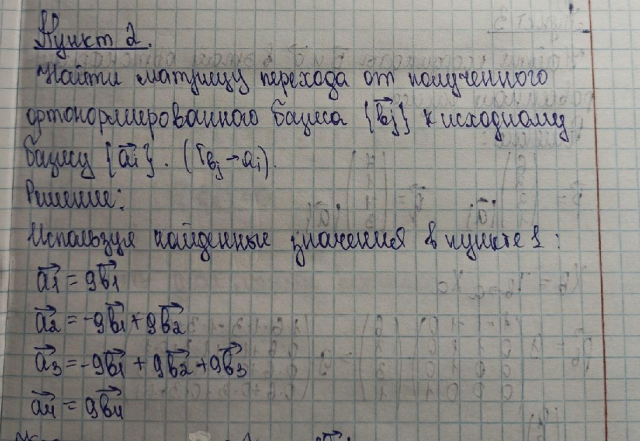 Пункт 2.
Найти матрицу перехода от полученного
ортонормированного базиса {b⃗j} к исходному
базису {a⃗i}. (Tbj→ai).
Решение:
Используя найденные значения в пункте 1:
a⃗1 = 9b⃗1
a⃗2 = -9b⃗1 + 9b⃗2
a⃗3 = -9b⃗1 + 9b⃗2 + 9b⃗3
a⃗4 = 9b⃗4